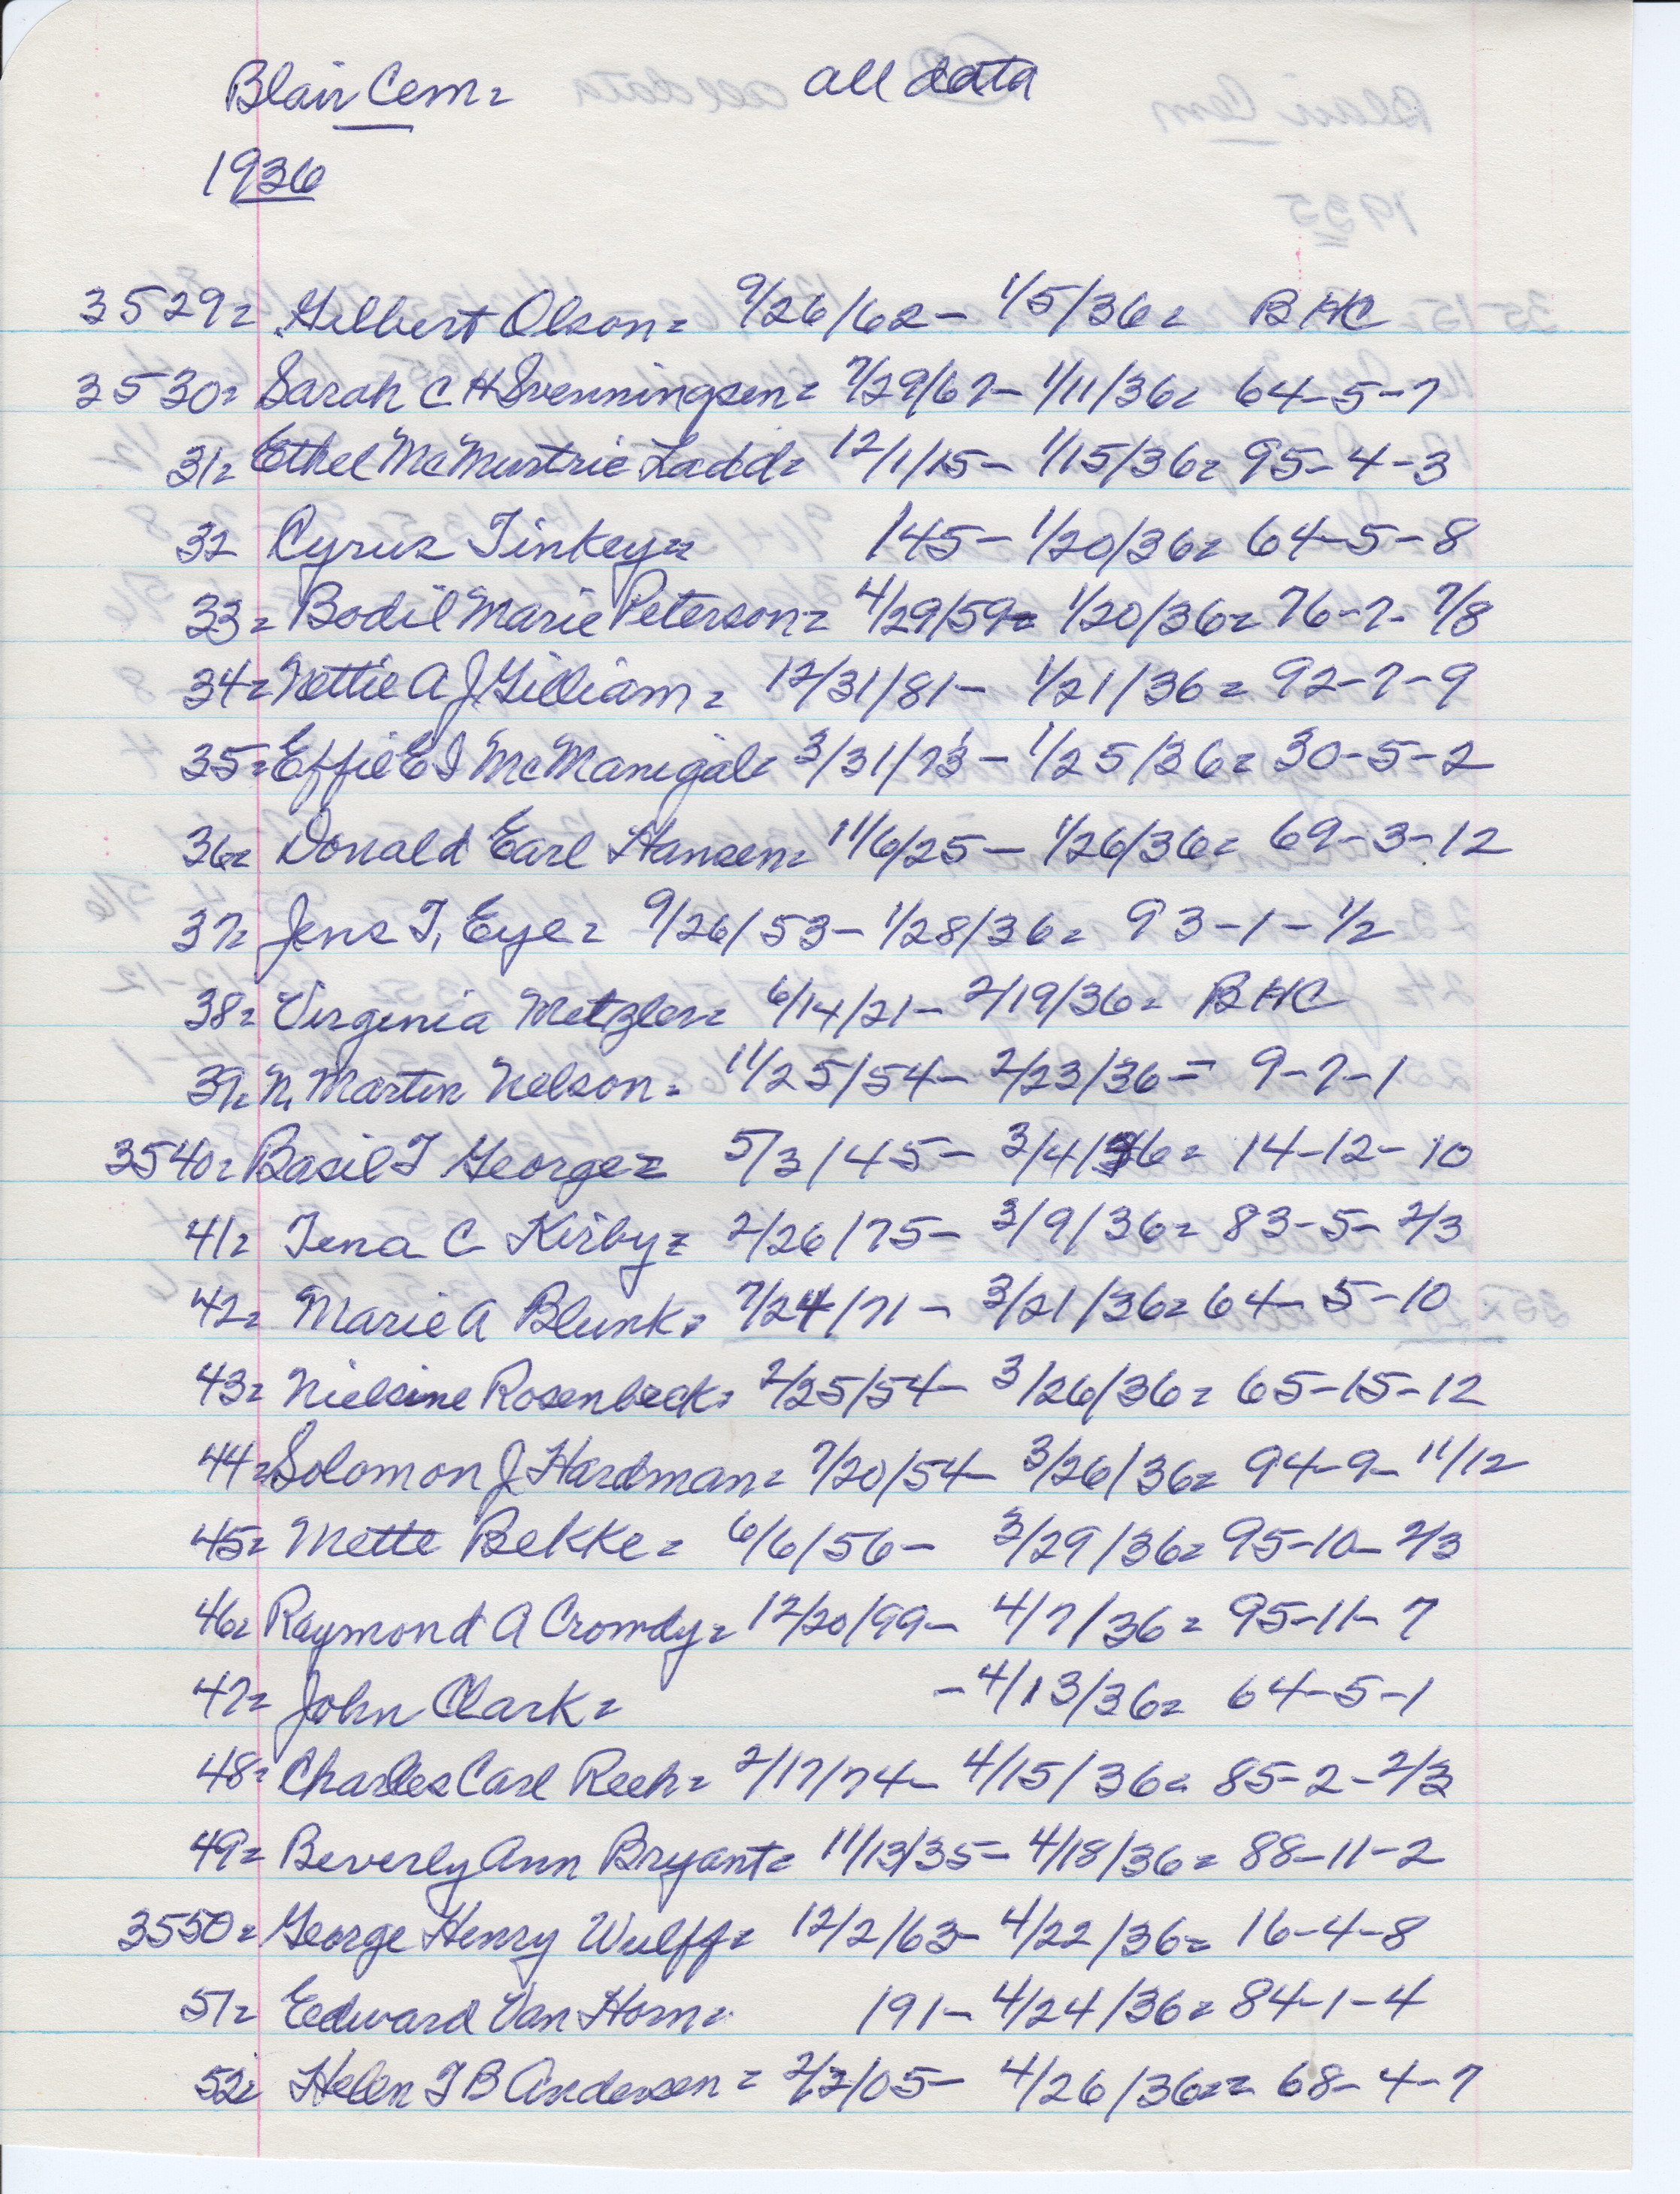 Blair Cem= all data
1936
3529= Gilbert Olson= 9/26/62- 1/5/36= BHC
3530= Sarah C H Svenningsen= 7/29/67- 1/11/36= 64-5-7
31= Ethel McMurtrie Ladd= 12/1/15- 1/15/36= 95-4-3
32 Cyrus Tinkey= /45- 1/20/36= 64-5-8
33= Bodil Marie Peterson= 4/29/59= 1/20/36= 76-7-7/8
34= Nettie A J Gilliam= 12/31/81- 1/21/36= 92-7-9
35= Effie E I McManigal= 3/31/73- 1/25/36= 30-5-2
36= Donald Earl Hansen= 11/6/25- 1/26/36= 69-3-12
37= Jens T, Eye= 9/26/53- 1/28/36= 93-1-1/2
38= Virginia Metzler= 6/14/21- 2/19/36= BHC
39= N, Martin Nelson= 11/25/54- 2/23/36= 9-7-1
3540= Basil T George= 5/3/45- 3/4/36= 14-12-10
41= Tena C Kirby= 2/26/75- 3/9/36= 83-5-2/3
42= Marie A Blunk= 7/24/71- 3/21/36= 64-5-10
43= Nielsine Rosenbeck= 2/25/54- 3/26/36= 65-15-12
44= Solomon J Hardman= 7/20/54- 3/26/36= 94-9-11/12
45= Mette Bekke= 6/6/56- 3/29/36= 95-10-2/3
46= Raymond A Crowdy= 12/20/99- 4/7/36= 95-11-7
47= John Clark= -4/13/36= 64-5-1
48= Charles Carl Reeh= 2/17/74- 4/15/36= 85-2-2/3
49= Beverly Ann Bryant= 11/13/35- 4/18/36= 88-11-2
3550= George Henry Wulff= 12/2/63- 4/22/36= 16-4-8
51= Eedward Van Horn= /91- 4/24/36= 84-1-4
52= Helen T B Andersen= 2/2/05- 4/26/36== 68-4-7